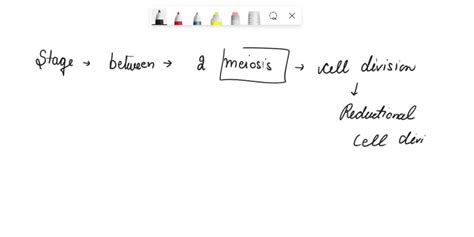 Stage → between → 2 meiosis → cell division
↓
Reductional
cell divi